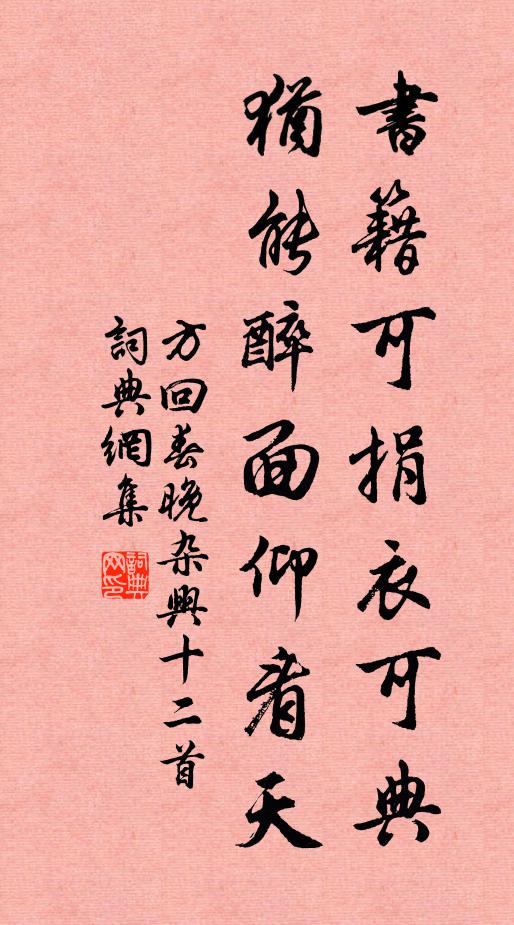 書籍可捐衣可典
猶能醉面仰看天
方回春晚杂興十二首
詞典網集
詞典網印